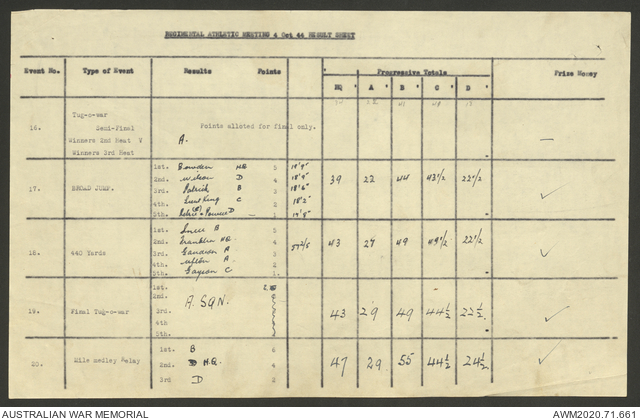 REGIMENTAL ATHLETIC MEETING 4 Oct 44 RESULT SHEET
Event No. Type of Event Results Points Progressive Totals Prize Money
HQ A B C D
16. Tug-o-war
Semi-Final
Winners 2nd Heat V
Winners 3rd Heat
A. Points alloted for final only.
17. BROAD JUMP.
1st. Bowden HQ 5 19'9"
2nd. Wilson D 4 18'9"
3rd. Patrick B 3 18'6"
4th. C 2 18'2"
5th. D 1
39 22 44 43½ 22½
18. 440 Yards
1st. B 5
2nd. Franklin HQ. 4
3rd. A 3
4th. A. 2
5th. C 1
57 2/5
43 27 49 22½
19. Final Tug-o-war
1st.
2nd.
3rd.
4th
5th
A SQN.
43 29 49 44½ 22½
20. Mile medley Relay
1st. B 6
2nd. H.Q. 4
3rd D 2
47 29 55 44½ 24½
AUSTRALIAN WAR MEMORIAL AWM2020.71.661